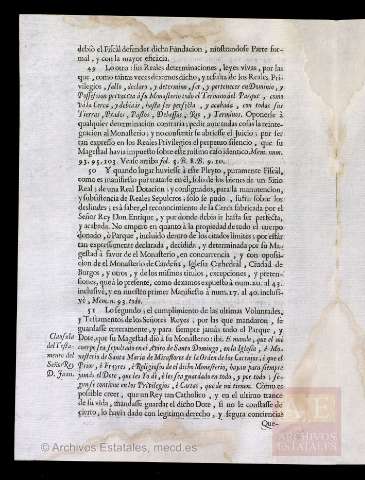 debió el Fiscal defender dicha Fundacion, mostrandose Parte formal, y con la mayor eficacia.
49 Lo otro: sus Reales determinaciones, leyes vivas, por las
que, como tantas veces devamos dicho, y resulta de los Reales Privilegios,
fallo, declaro, y determino, ser, y pertenecer en Dominio, y
Possession privativa à su Monasterio todo el Termino del Parque, como
và la Cerca, y debe ir, hasta ser perfecta, y acabada, con todas sus
Tierras, Prados, Pastos, Dehessas, Rio, y Terminos. Oponerse à
qualquier determinacion contraria; pedir ante todas cosas la reintegracion
al Monasterio; y no consentir se abriesse el Juicio; por ser
tan expresso en los Reales Privilegios el perpetuo silencio, que su
Magestad havia impuesto sobre este mismo caso identico. Mem. num.
93. 95. 103. Verse arriba fol. 5. B. 8. B. 9. 10.
50 Y quando lugar huviesse à este Pleyto, puramente Fiscal,
como es manifiesto por tratarse en él, solo de los bienes de un Sitio
Real; de una Real Dotacion; y consignados, para la manutencion,
y subsistencia de Reales Sepulcros; solo se pudo, sufrir sobre los
deslindes; esà saber, el reconocimiento de la Cerca fabricada por el
Señor Rey Don Enrique, y por donde debió ir hasta ser perfecta,
y acabada. No empero en quanto à la propiedad de todo el cuerpo
donado, ò Parque, incluido dentro de los citados limites; por estár
tan expressamente declarada, decidida, y determinada por su Magestad
à favor de el Monasterio, en concurrencia, y con oposicion
de el Monasterio de Cardeña, Iglesia Cathedral, Ciudad de
Burgos, y otros, y de los mismos titulos, excepciones, y pretensiones,
que à lo presente, como dexamos expuesto à num. 20. al 43.
inclusivè, y en nuestro primer Manifiesto à num. 17. al 40. inclusivè,
Mem. n. 93. todo.
51 Lo segundo; el cumplimiento de las ultimas Voluntades,
y Testamentos de los Señores Reyes: por las que mandaron, se
guardasse enteramente, y para siempre jamàs todo el Parque, y
Dote, que su Magestad diò à su Monasterio: ibi. E mando, que el mi
cuerpo sea sepultado en el Atrio de Santo Domingo, en la Iglesia, è Monasterio
de Santa Maria de Miraflores de la Orden de los Cartuxos, è que el
Prior, è Freyres, è Religiosos de el dicho Monasterio, hayan para siempre
jamàs el Dote, que les Yo di, è les sea guardado en todo, y por todo, segun
se contiene en los Privilegios, è Cartas, que de mi tienen. Cómo es
possible creer, que un Rey tan Catholico, y en el ultimo trance
de su vida, mandasse guardar el dicho Dote, si no le constasse de
cierto, lo havia dado con legitimo derecho, y segura conciencia?
Que-
Clausula
del Testamento
del
Señor Rey
D. Juan.
© Archivos Estatales, mecd.es
ARCHIVOS
ESTATALES